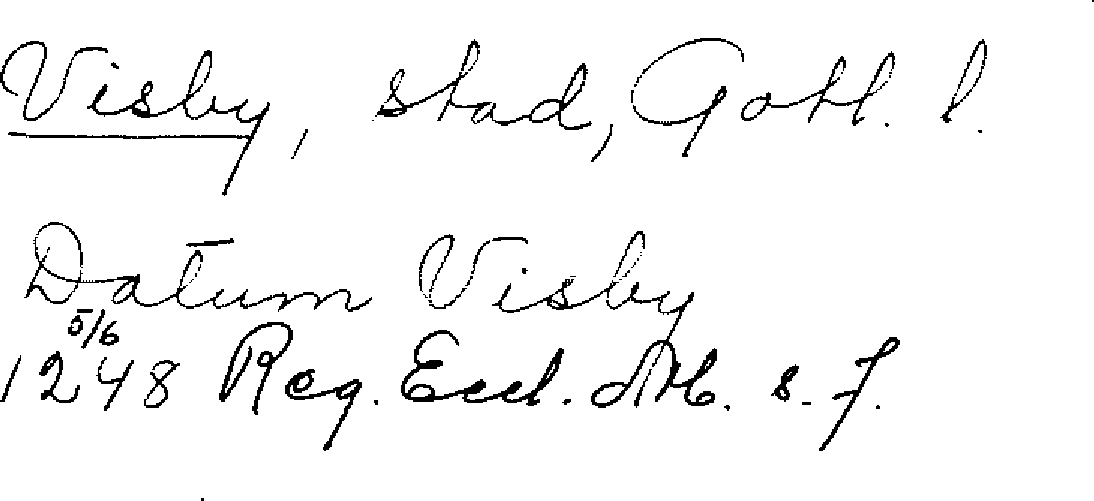 Visby, stad, Gotl. l.
Datum Visby
5/6
1248 Reg. Eccl. Ab. s. 7.